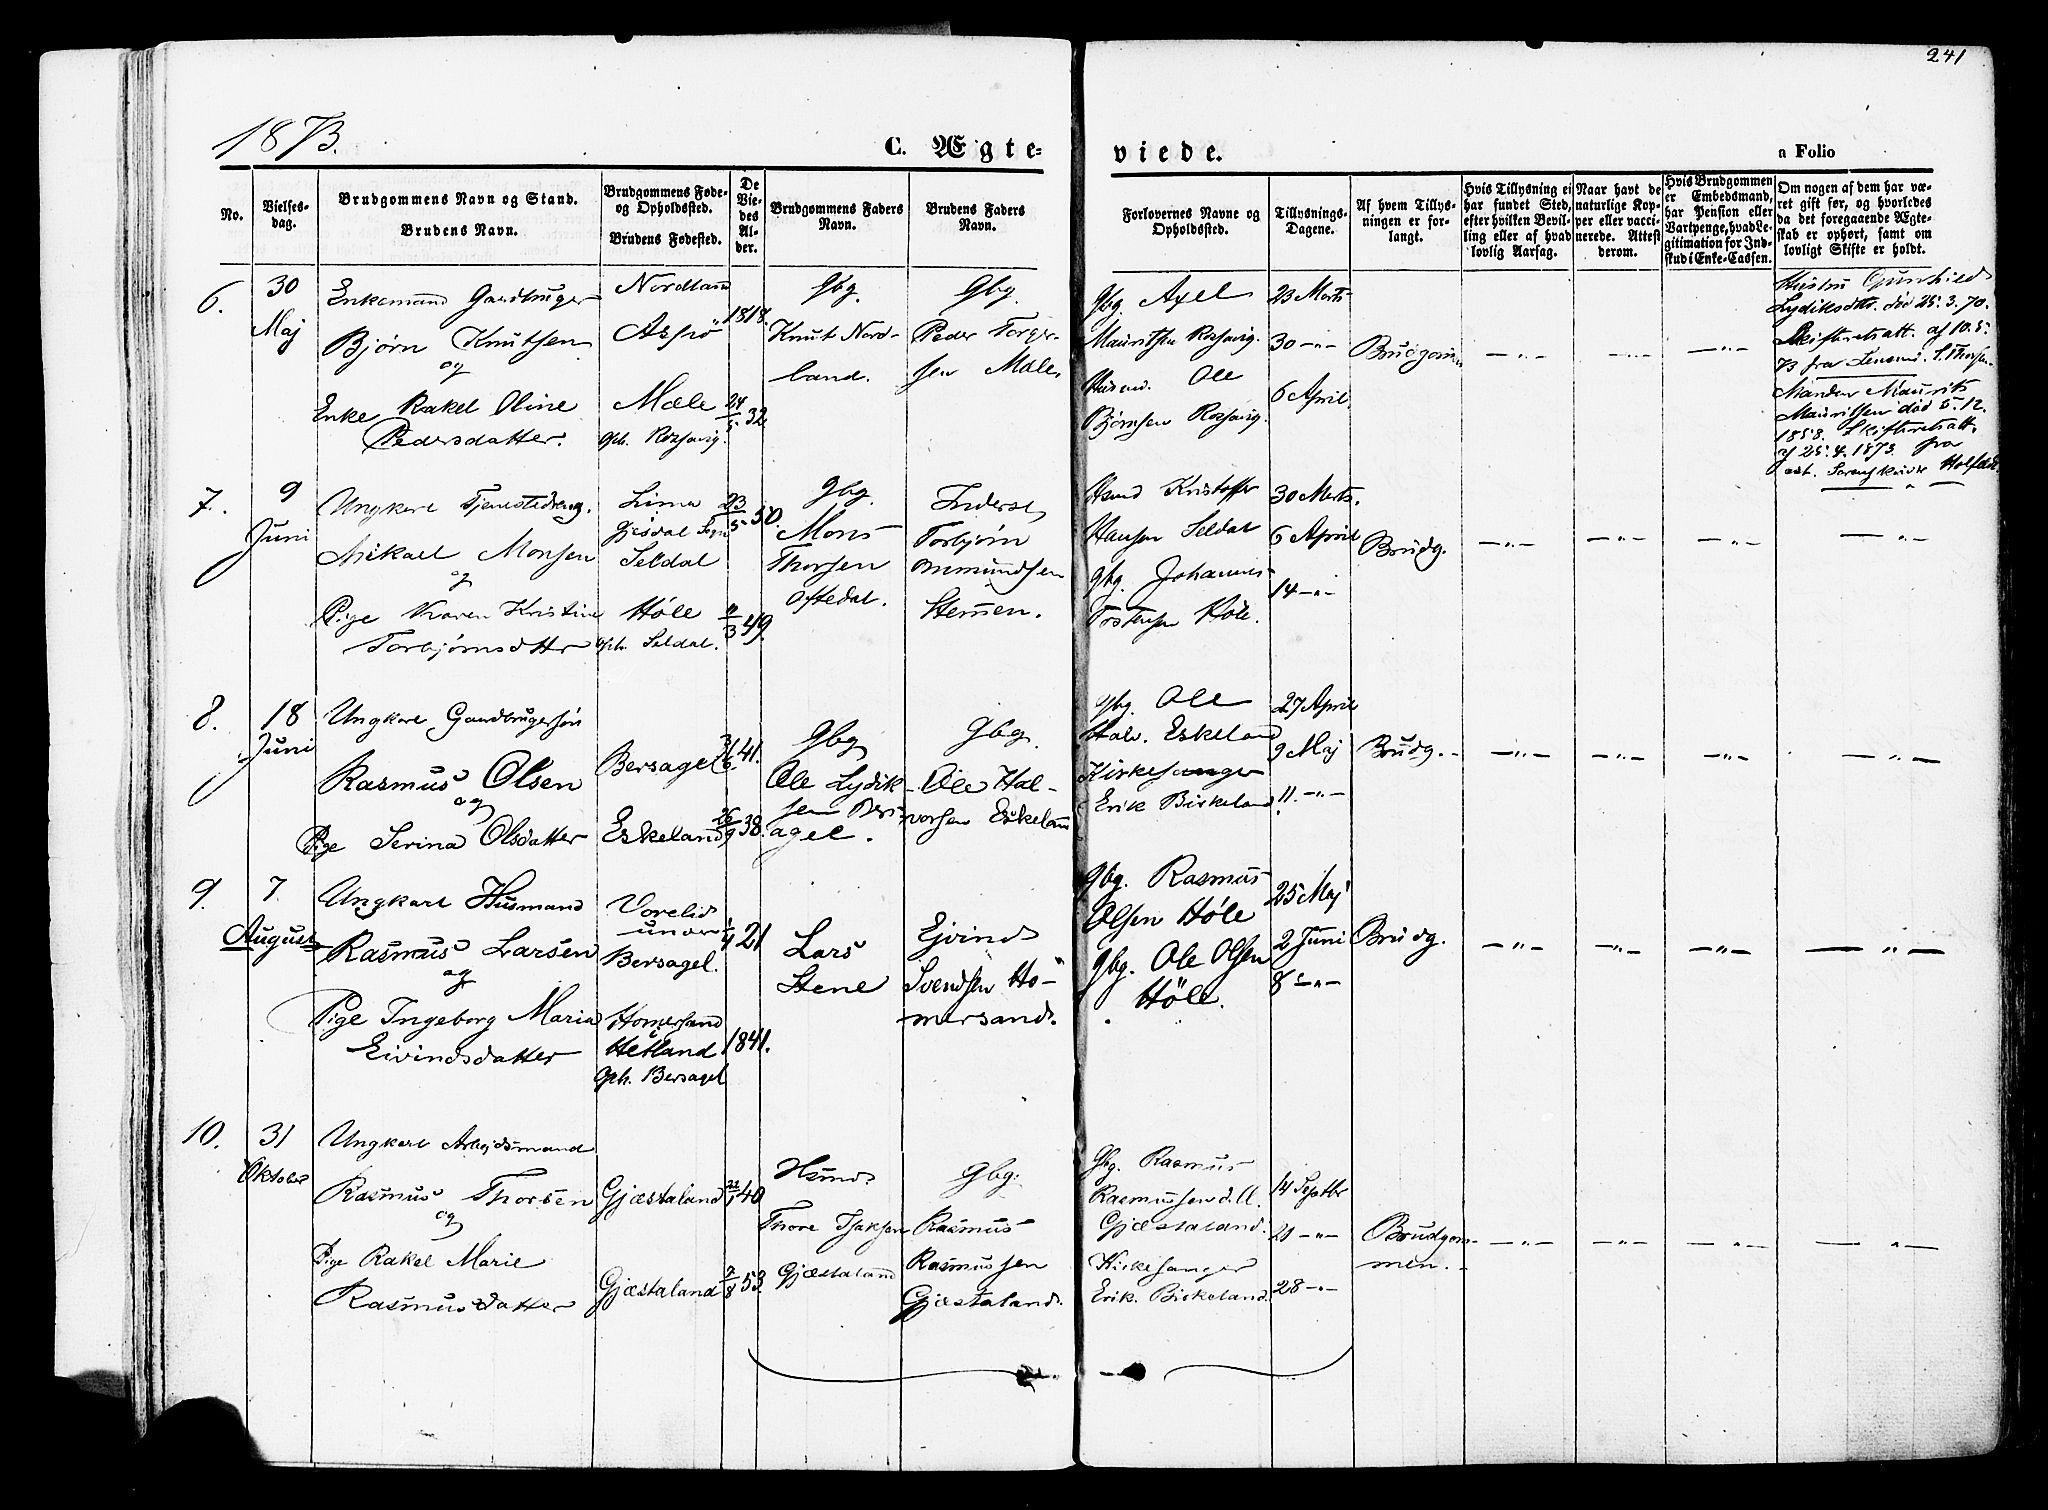 241
1873.
C. Ægte-
viede.
a Folio
No.
Vielses-
dag.
Brudgommens Navn og Stand.
Brudens Navn.
Brudgommens Føde-
og Opholdssted.
Brudens Fødested.
De
Vie-
des
Al-
der.
Brudgommens Faders
Navn.
Brudens Faders
Navn.
Forlovernes Navne og
Opholdssted.
Tillysnings-
Dagene.
Af hvem Tillys-
ningen er for-
langt.
Hvis Tillysning ei
har fundet Sted,
efter hvilken Bevil-
ling eller af hvad
lovlig Aarsag.
Naar havt de
naturlige Kop-
per eller vacci-
nerede. Attest
derom.
Hvis Brudgommen
er Embedsmand,
har Pension eller
Vartpenge, hvad Le-
gitimation for Ind-
skud i Enke-Cassen.
Om nogen af dem har væ-
ret gift før, og hvorledes
da det foregaaende Ægte-
skab er ophørt, samt om
lovligt Skifte er holdt.
6.
30
Maj
Enkemand Gaardbruger
Bjørn Knutsen
og
Enke Rakel Oline
Pedersdatter.
Nordland
Aspø
Mæle
Oph. Rossavig.
1818.
24/5 32
Gbg.
Knut Nord-
land.
Gbg.
Peder Torger-
sen Mæle
Gbg. Axel
Mauritsen Rossavig.
Husm. Ole
Bjørnsen Rossavig.
23 Marts
30 -"-
6 April
Brudgom
-"-
-"-
-"-
Hustru Gunhild
Lydiksdtr. død 25.3.70.
Skifteretsatt. af 10.5.
73 fra Lensmd. S. Thorsen
Manden Maurits
Mauritsen død 5.12.
1858. Skifteretsatt.
af 25.4.1873. fra
Sorenskriver
7.
9
Juni
Ungkarl Tjenestedreng.
Mikael Monsen
og
Pige Karen Kristine
Torbjørnsdtr
Lima
Gjesdal Sogn
Seldal
Høle
Oph. Seldal.
23/5 50.
11/3 49.
Gbg.
Mons
Thorsen
Oftedal.
Inderst
Torbjørn
Omundsen
Stemen.
Husmd Kristoffer
Hansen Seldal
gbg. Johannes
Tostensen Høle.
30 Marts.
6 April
14 -"-
Brudg.
-"-
-"-
-"-
-"-
8.
18
Juni
Ungkarl Gaardbrugersøn
Rasmus Olsen
og
Pige Serina Olsdatter
Bersagel
Eskeland
41.
26/9 38.
Gbg
Ole Lydik-
sen Bers-
agel.
Gbg.
Ole Hal-
vorsen Eskeland
gbg. Ole
Halv. Eskeland
Kirkesanger
Erik Birkeland
27 April
9 Maj
11. -"-
Brudg.
-"-
-"-
-"-
-"-
9.
7.
August
Ungkarl Husmand
Rasmus Larsen
og
Pige Ingeborg Maria
Eivindsdatter
Vorelid
under
Bersagel.
Homersand
i
Hetland
Oph. Bersagel
1/4 21
1841.
Lars
Stene
Ejvind
Svendsen Ho-
mersand.
gbg. Rasmus
Olsen Høle
gbg. Ole Olsen
Høle.
25 Maj
2 Juni
8 -"-
Brudg.
-"-
-"-
-"-
-"-
10.
31
Oktober
Ungkarl Arbejdsmand
Rasmus Thorsen
og
Pige Rakel Marie
Rasmusdatter
Gjæstaland
Gjæstaland
40
7/8 53.
Husmd
Thore Isaksen
Gjæstaland
Gbg.
Rasmus
Rasmussen
Gjæstaland.
Gbg. Rasmus
Rasmussen d. Æ.
Gjæstaland.
Kirkesanger
Erik Birkeland.
14 Septbr
21 -"-
28 -"-
Brudgom-
men.
-"-
-"-
-"-
-"-